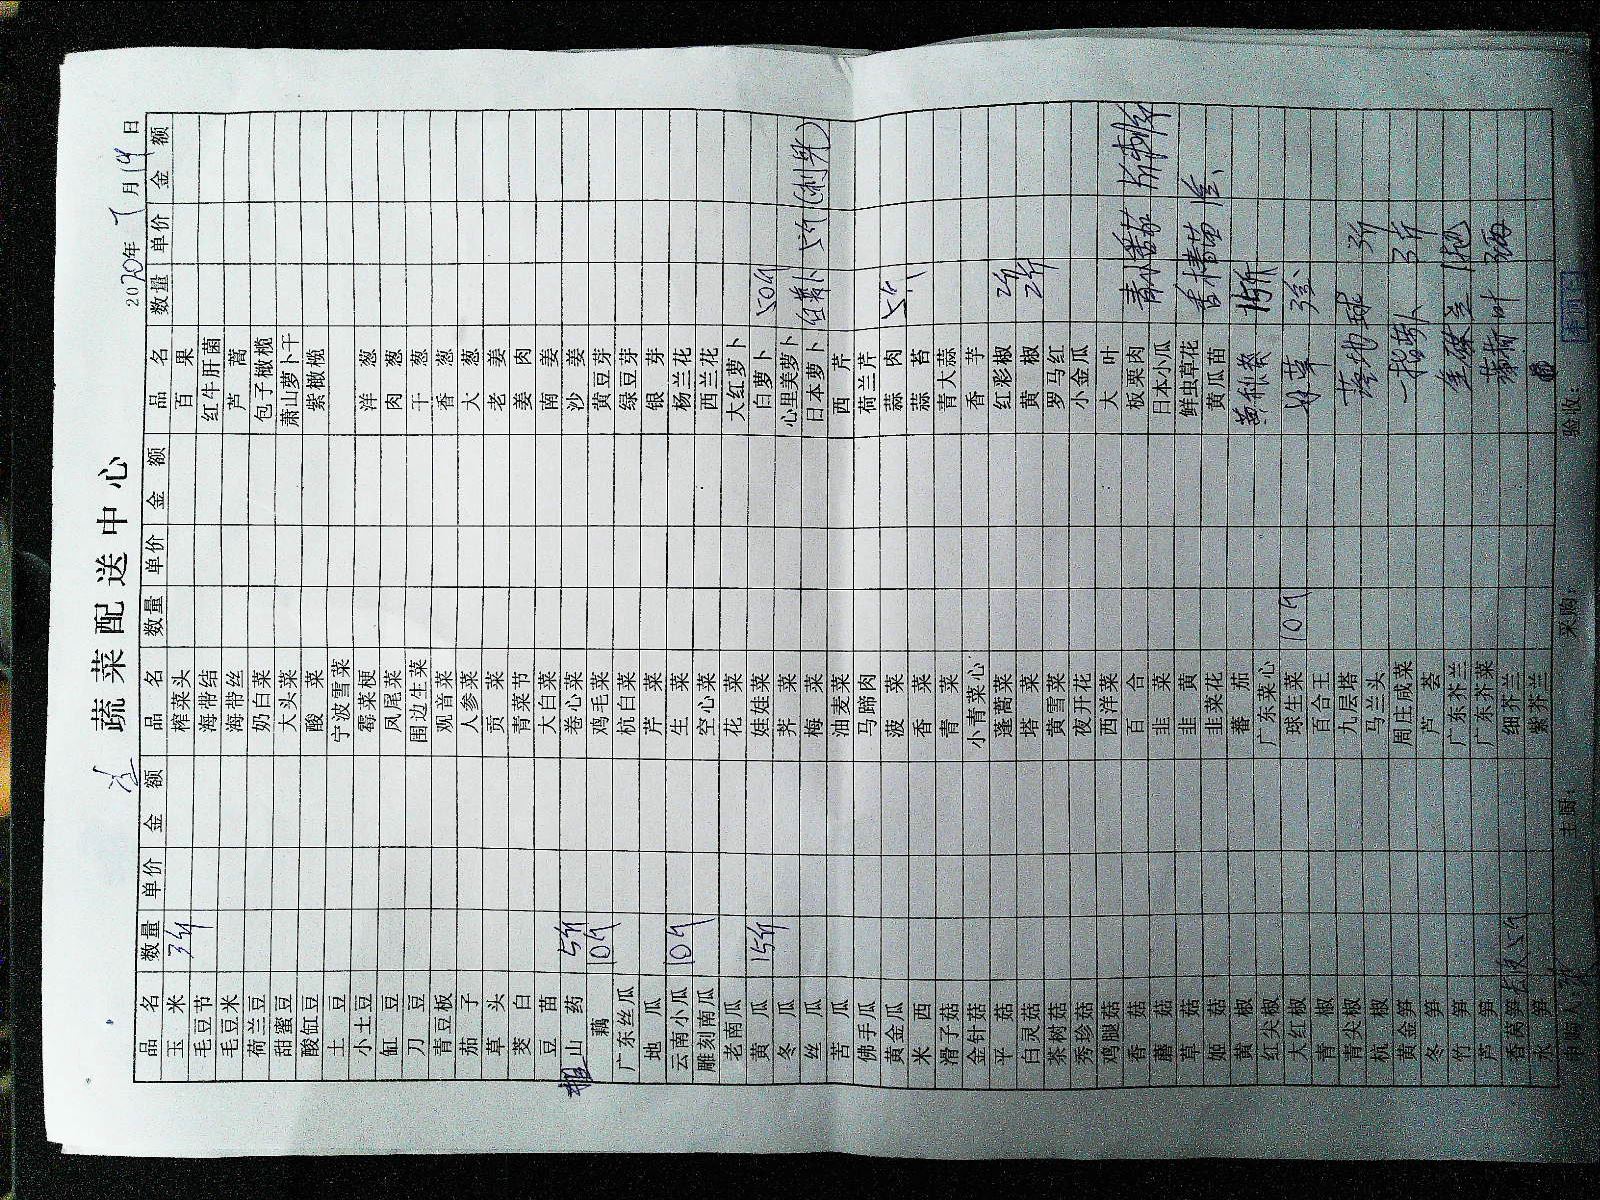 蔬菜配送中心
2020年7月19日
品名 数量 单价 金额 品名 数量 单价 金额 品名 数量 单价 金额
玉米 3斤 榨菜头 百果
毛豆节 海带结 红牛肝菌
毛豆米 海带丝 芦蒿
荷兰豆 奶白菜 包子橄榄
甜蜜豆 大头菜 萧山萝卜干
酸缸豆 酸菜 紫橄榄
土豆 宁波雪菜
小土豆 霉菜梗 洋葱
缸豆 凤尾菜 肉葱
刀豆 围边生菜 干葱
青豆板 观音菜 香葱
茄子 人参菜 大葱
草头 贡菜 老姜
茭白 青菜节 姜肉
豆苗 大白菜 南姜
山药 5斤 卷心菜 沙姜
藕 10斤 鸡毛菜 黄豆芽
广东丝瓜 杭白菜 绿豆芽
地瓜 芹菜 银芽
云南小瓜 10斤 生菜 杨兰花
雕刻南瓜 空心菜 西兰花
老南瓜 花菜 大红萝卜
黄瓜 15斤 娃娃菜 白萝卜 50斤
冬瓜 荠菜 心里美萝卜
丝瓜 梅菜 日本萝卜 白萝卜 5斤
苦瓜 油麦菜 西芹
佛手瓜 马蹄肉 荷兰芹
黄金瓜 菠菜 蒜肉 5斤
米西 香菜 蒜苔
滑子菇 青菜 青大蒜
金针菇 小青菜心 香芋
平菇 蓬蒿菜 红彩椒 2斤
白灵菇 塔菜 黄椒 2斤
茶树菇 黄雪菜 罗马红
秀珍菇 夜开花 小金瓜
鸡腿菇 西洋菜 大叶
香菇 百合 板栗肉 青小番茄
蘑菇 韭菜 日本小瓜
草菇 韭黄 鲜虫草花 香椿苗
姬菇 韭菜花 黄瓜苗
黄椒 蕃茄 黄秋葵 15斤
红尖椒 广东菜心
大红椒 球生菜 10斤
青椒 百合王
青尖椒 九层塔 3斤
杭椒 马兰头
黄金笋 周庄咸菜 3斤
冬笋 芦荟
竹笋 广东芥兰
芦笋 广东芥菜
香莴笋 细芥兰
水笋 紫芥兰
主厨： 采购： 验收：